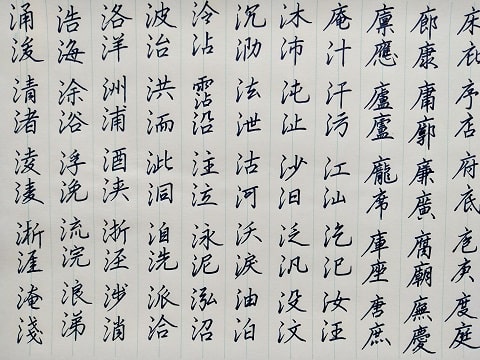 床庇序店府底庖庚度庭
廊康庸廓廉廣腐廟廡慶
廩應廬廬龐席庫座唐庶
庵汁汗污江汕汔汜汝汪
沐沛沌沚沙汨泛汎没汶
沉泐泫泄沽河沃淚油泊
泠沾霑沿注泣泳泥泓沼
波治洪洏泚洞洎洗派洽
洛洋洲浦酒浹浙涇涉消
浩海涂浴浮浼流浣浪涕
涌浚清渚淩淒淅涯淹淺